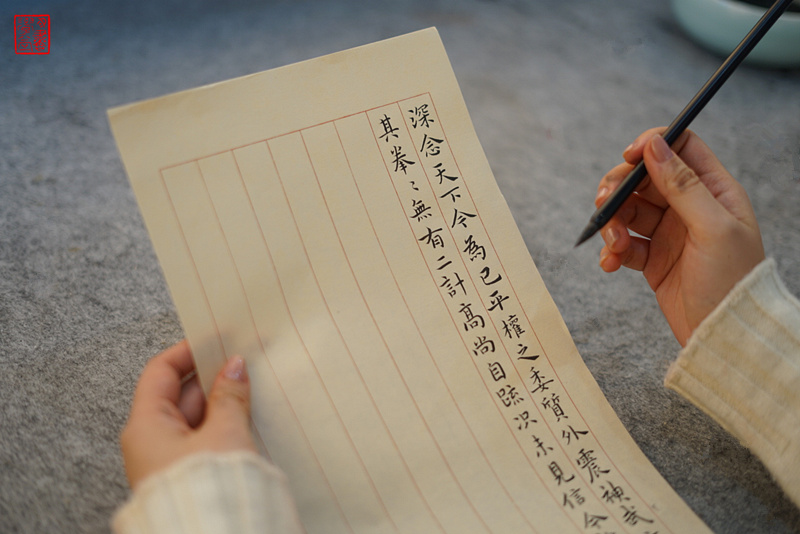 深念天下今為已平權之委質外震神武
其拳〻無有二計高尚自疏况未見信今